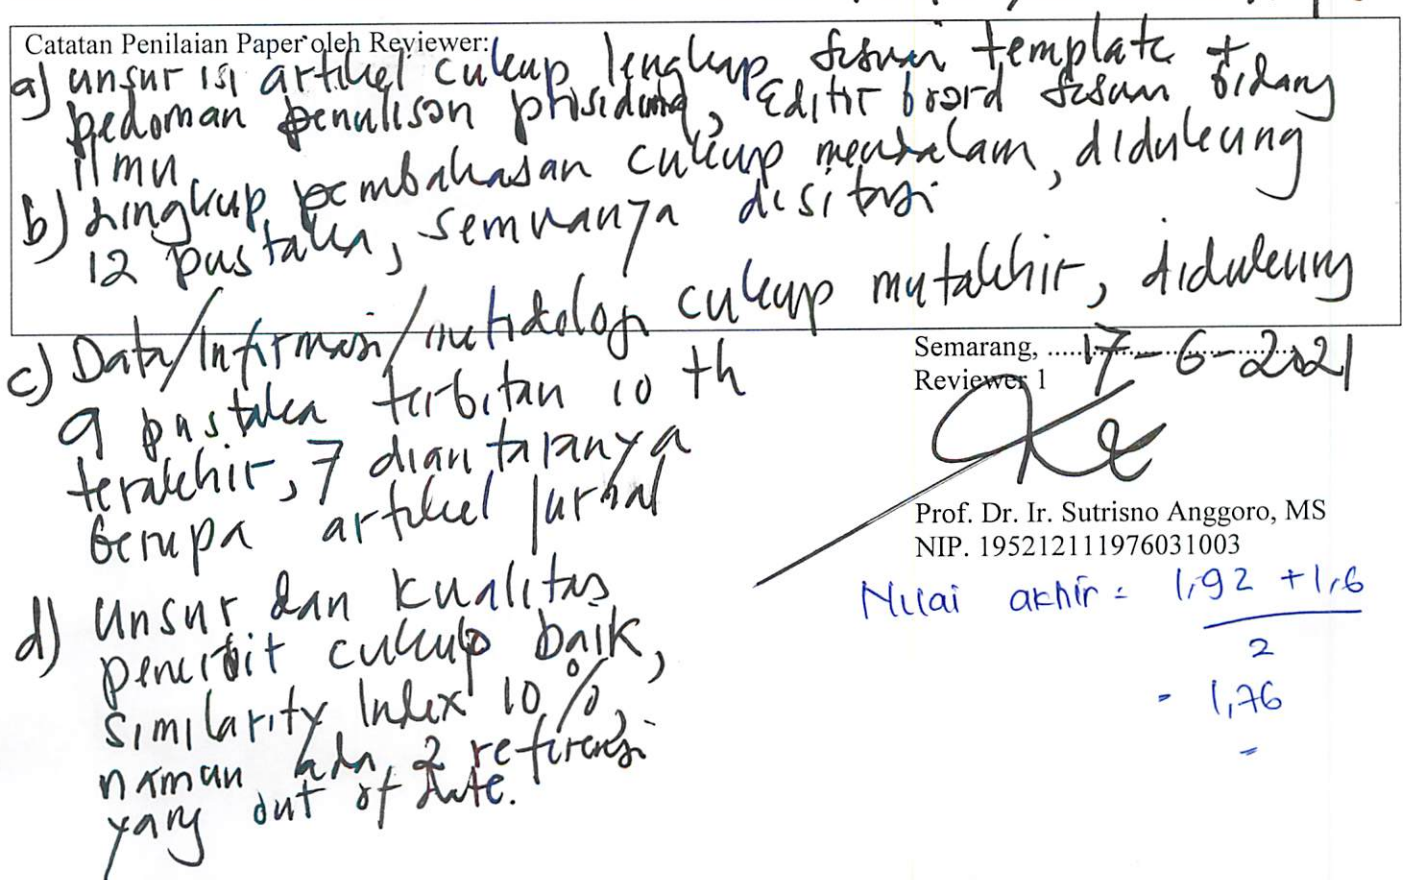 Catatan Penilaian Paper oleh Reviewer:
a) unsur isi artikel cukup lengkap sesuai template +
pedoman penulisan prosiding, Editor board sesuai bidang
ilmu
b) Lingkup pembahasan cukup mendalam, didukung
12 pustaka, semuanya disitasi
c) Data/Informasi/metodologi cukup mutakhir, didukung
9 pustaka terbitan 10 th
terakhir, 7 diantaranya
berupa artikel jurnal
d) Unsur dan kualitas
penerbit cukup baik,
similarity Index 10%,
namun ada 2 referensi
yang out of date.
Semarang, ..... 17-6-2021
Reviewer 1
Prof. Dr. Ir. Sutrisno Anggoro, MS
NIP. 195212111976031003
Nilai akhir = 1,92 + 1,6
2
= 1,76